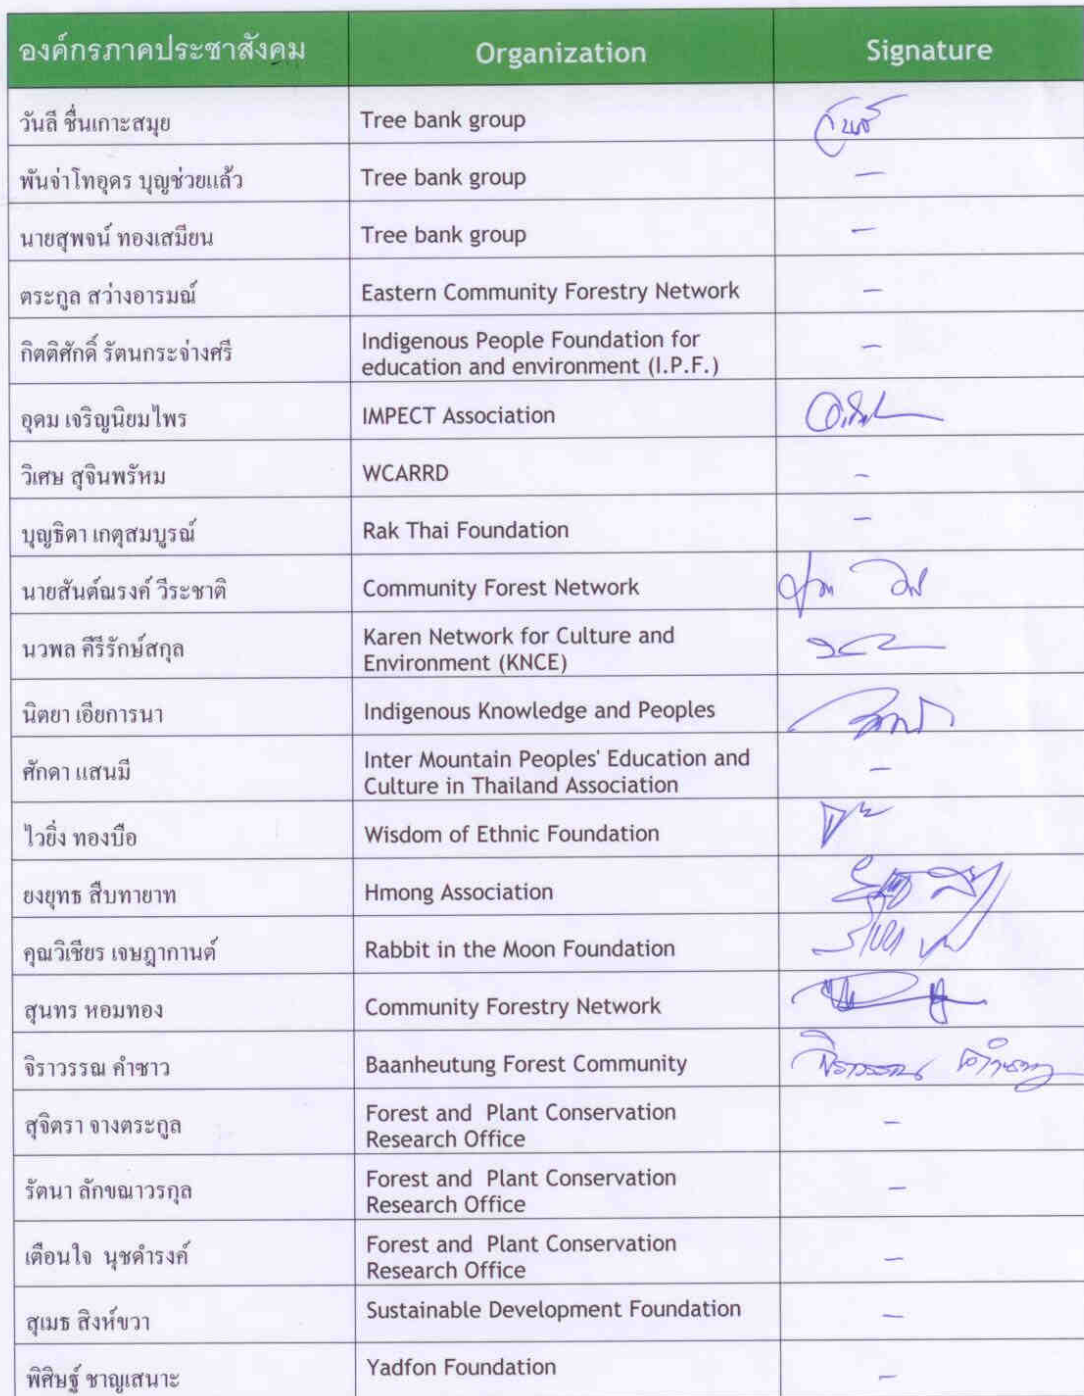 องค์กรภาคประชาสังคม Organization Signature
วันลี ชื่นเกาะสมุย Tree bank group
พันจ่าโทอุดร บุญช่วยแล้ว Tree bank group –
นายสุพจน์ ทองเสมียน Tree bank group –
ตระกูล สว่างอารมณ์ Eastern Community Forestry Network –
กิตติศักดิ์ รัตนกระจ่างศรี Indigenous People Foundation for
education and environment (I.P.F.) –
อุดม เจริญนิยมไพร IMPECT Association
วิเศษ สุจินพรัหม WCARRD –
บุญธิดา เกตุสมบูรณ์ Rak Thai Foundation –
นายสันต์ณรงค์ วีระชาติ Community Forest Network
นวพล คีรีรักษ์สกุล Karen Network for Culture and
Environment (KNCE)
นิตยา เอียการนา Indigenous Knowledge and Peoples
ศักดา แสนมี Inter Mountain Peoples' Education and
Culture in Thailand Association –
ไวยิ่ง ทองบือ Wisdom of Ethnic Foundation
ยงยุทธ สืบทายาท Hmong Association
คุณวิเชียร เจษฎากานต์ Rabbit in the Moon Foundation
สุนทร หอมทอง Community Forestry Network
จิราวรรณ คำซาว Baanheutung Forest Community
สุจิตรา จางตระกูล Forest and Plant Conservation
Research Office –
รัตนา ลักขณาวรกุล Forest and Plant Conservation
Research Office –
เตือนใจ นุชดำรงค์ Forest and Plant Conservation
Research Office –
สุเมธ สิงห์ขวา Sustainable Development Foundation –
พิศิษฐ์ ชาญเสนาะ Yadfon Foundation –